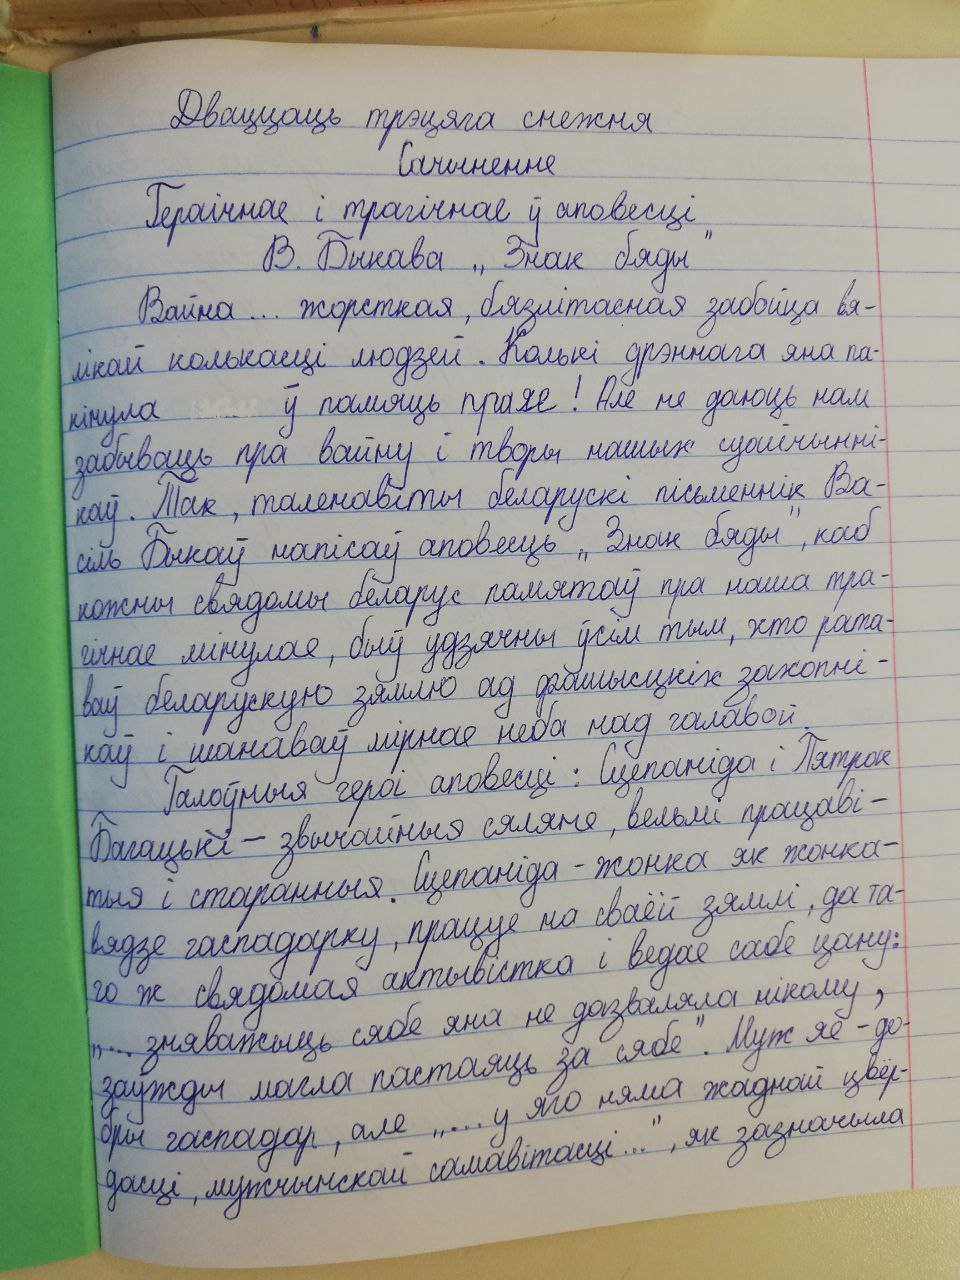 Дваццаць трэцяга снежня
Сачыненне
Гераічнае і трагічнае ў аповесці
В. Быкава „Знак бяды"
Вайна... жорсткая, бязлітасная забойца вя-
лікай колькасці людзей. Колькі дрэннага яна па-
кінула ў памяць праже! Але не даюць нам
забываць пра вайну і творы нашых суайчынні-
каў. Так, таленавіты беларускі пісьменнік Ва-
сіль Быкаў напісаў аповесць „Знак бяды", каб
кожны свядомы беларус памятаў пра наша тра-
гічнае мінулае, быў удзячны ўсім тым, хто рата-
ваў беларускую зямлю ад фашысцкіх захопні-
каў і шанаваў мірнае неба над галавой.
Галоўныя героі аповесці: Сцепаніда і Пятрок
Багацькі – звычайныя сяляне, вельмі працаві-
тыя і старанныя. Сцепаніда - жонка як жонка -
вядзе гаспадарку, працуе на сваёй зямлі, да та-
го ж свядомая актывістка і ведае сабе цану:
„... зняважыць сябе яна не дазваляла нікому,
заўжды магла пастаяць за сябе". Муж яе - до-
бры гаспадар, але „... у яго няма жаднай цвёр-
дасці, мужчынскай самавітасці...", як зазначыла